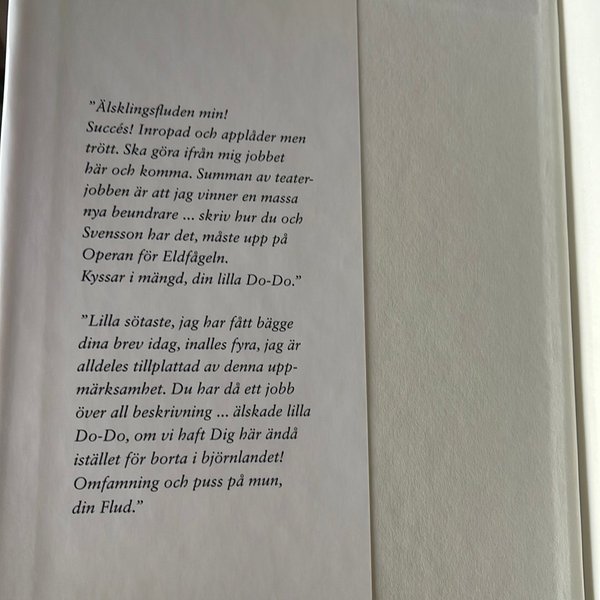 ”Älsklingsfluden min!
Succés! Inropad och applåder men
trött. Ska göra ifrån mig jobbet
här och komma. Summan av teater-
jobben är att jag vinner en massa
nya beundrare ... skriv hur du och
Svensson har det, måste upp på
Operan för Eldfågeln.
Kyssar i mängd, din lilla Do-Do.”
”Lilla sötaste, jag har fått bägge
dina brev idag, inalles fyra, jag är
alldeles tillplattad av denna upp-
märksamhet. Du har då ett jobb
över all beskrivning ... älskade lilla
Do-Do, om vi haft Dig här ändå
istället för borta i björnlandet!
Omfamning och puss på mun,
din Flud.”